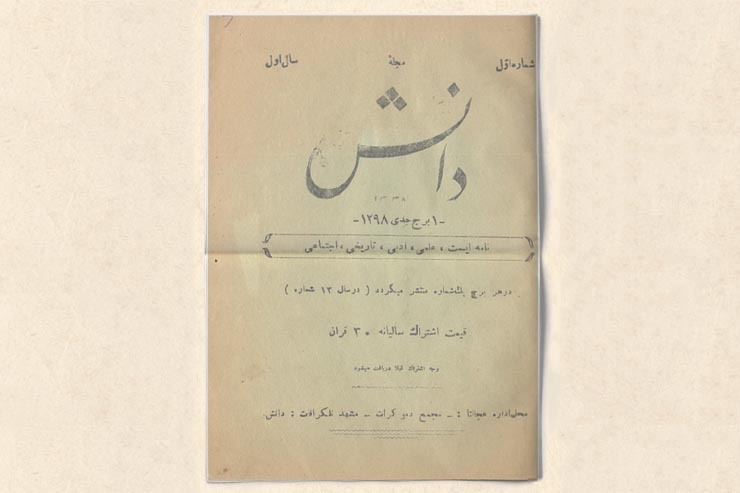 شماره اول مجلهٔ سال اول
دانش
۱۳۳۸
-۱ برج جدی ۱۲۹۸-
نامه ایست ، علمی ، ادبی ، تاریخی ، اجتماعی
در هر برج یکشماره منتشر میگردد ( در سال ۱۲ شماره )
قیمت اشتراك سالیانه ۳۰ قران
وجه اشتراك قبلا دریافت میشود
محل اداره عجالتا : ـ مجمع دموکرات ـ مشهد تلگرافات : دانش